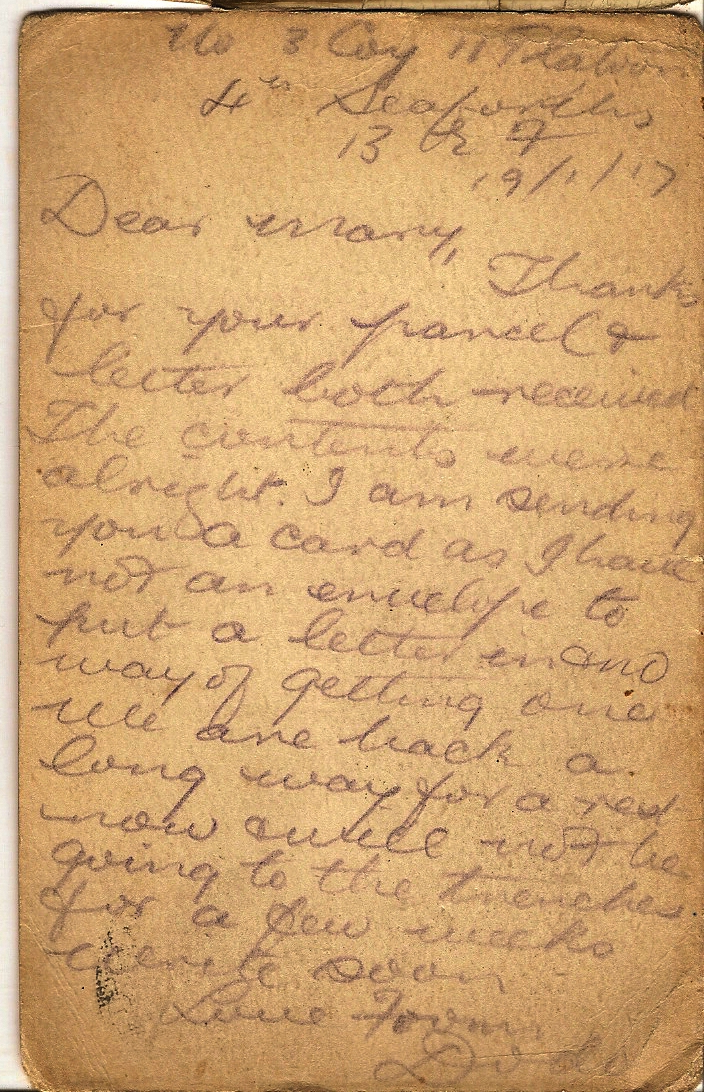 No 3 Coy 11 Platoon
4th Seaforths
B E F
19/1/17
Dear Mary,
Thanks
for your parcel &
letter both received
The contents were
alright. I am sending
you a card as I have
not an envelope to
put a letter in & no
way of getting one
We are back a
long way for a rest
now & will not be
going to the trenches
for a few weeks
write soon
Love From